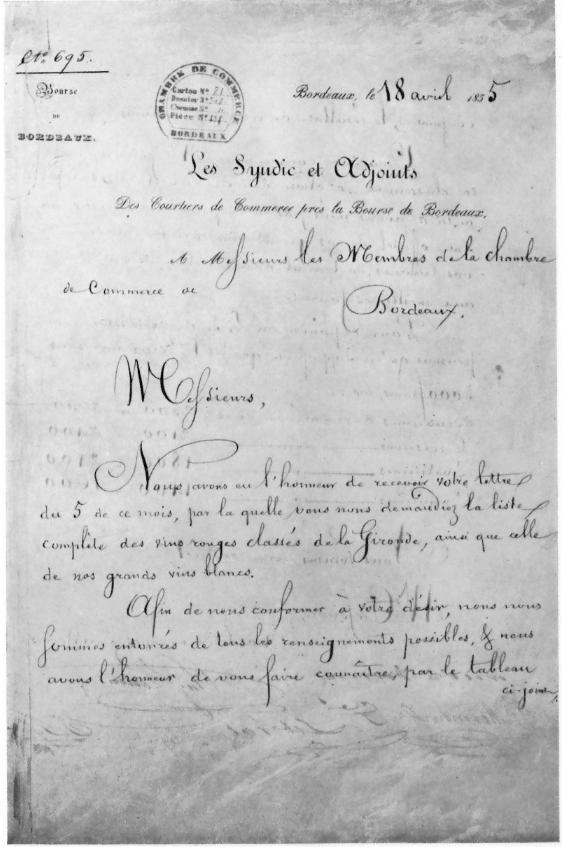 N° 695.
Bourse
DE
BORDEAUX.
CHAMBRE DE COMMERCE
Carton N°
Dossier N°
Chemise N°
Pièce N°
BORDEAUX
Bordeaux, le 18 avril 1855
Les Syndic et Adjoints
Des Courtiers de Commerce près la Bourse de Bordeaux,
A Messieurs les Membres de la chambre
de Commerce de
Bordeaux.
Messieurs,
Nous avons eu l'honneur de recevoir votre lettre
du 5 de ce mois, par la quelle vous nous demandiez la liste
complète des vins rouges classés de la Gironde, ainsi que celle
de nos grands vins blancs.
Afin de nous conformer à votre désir, nous nous
sommes entourés de tous les renseignements possibles, & nous
avons l'honneur de vous faire connaître, par le tableau
ci-joint,